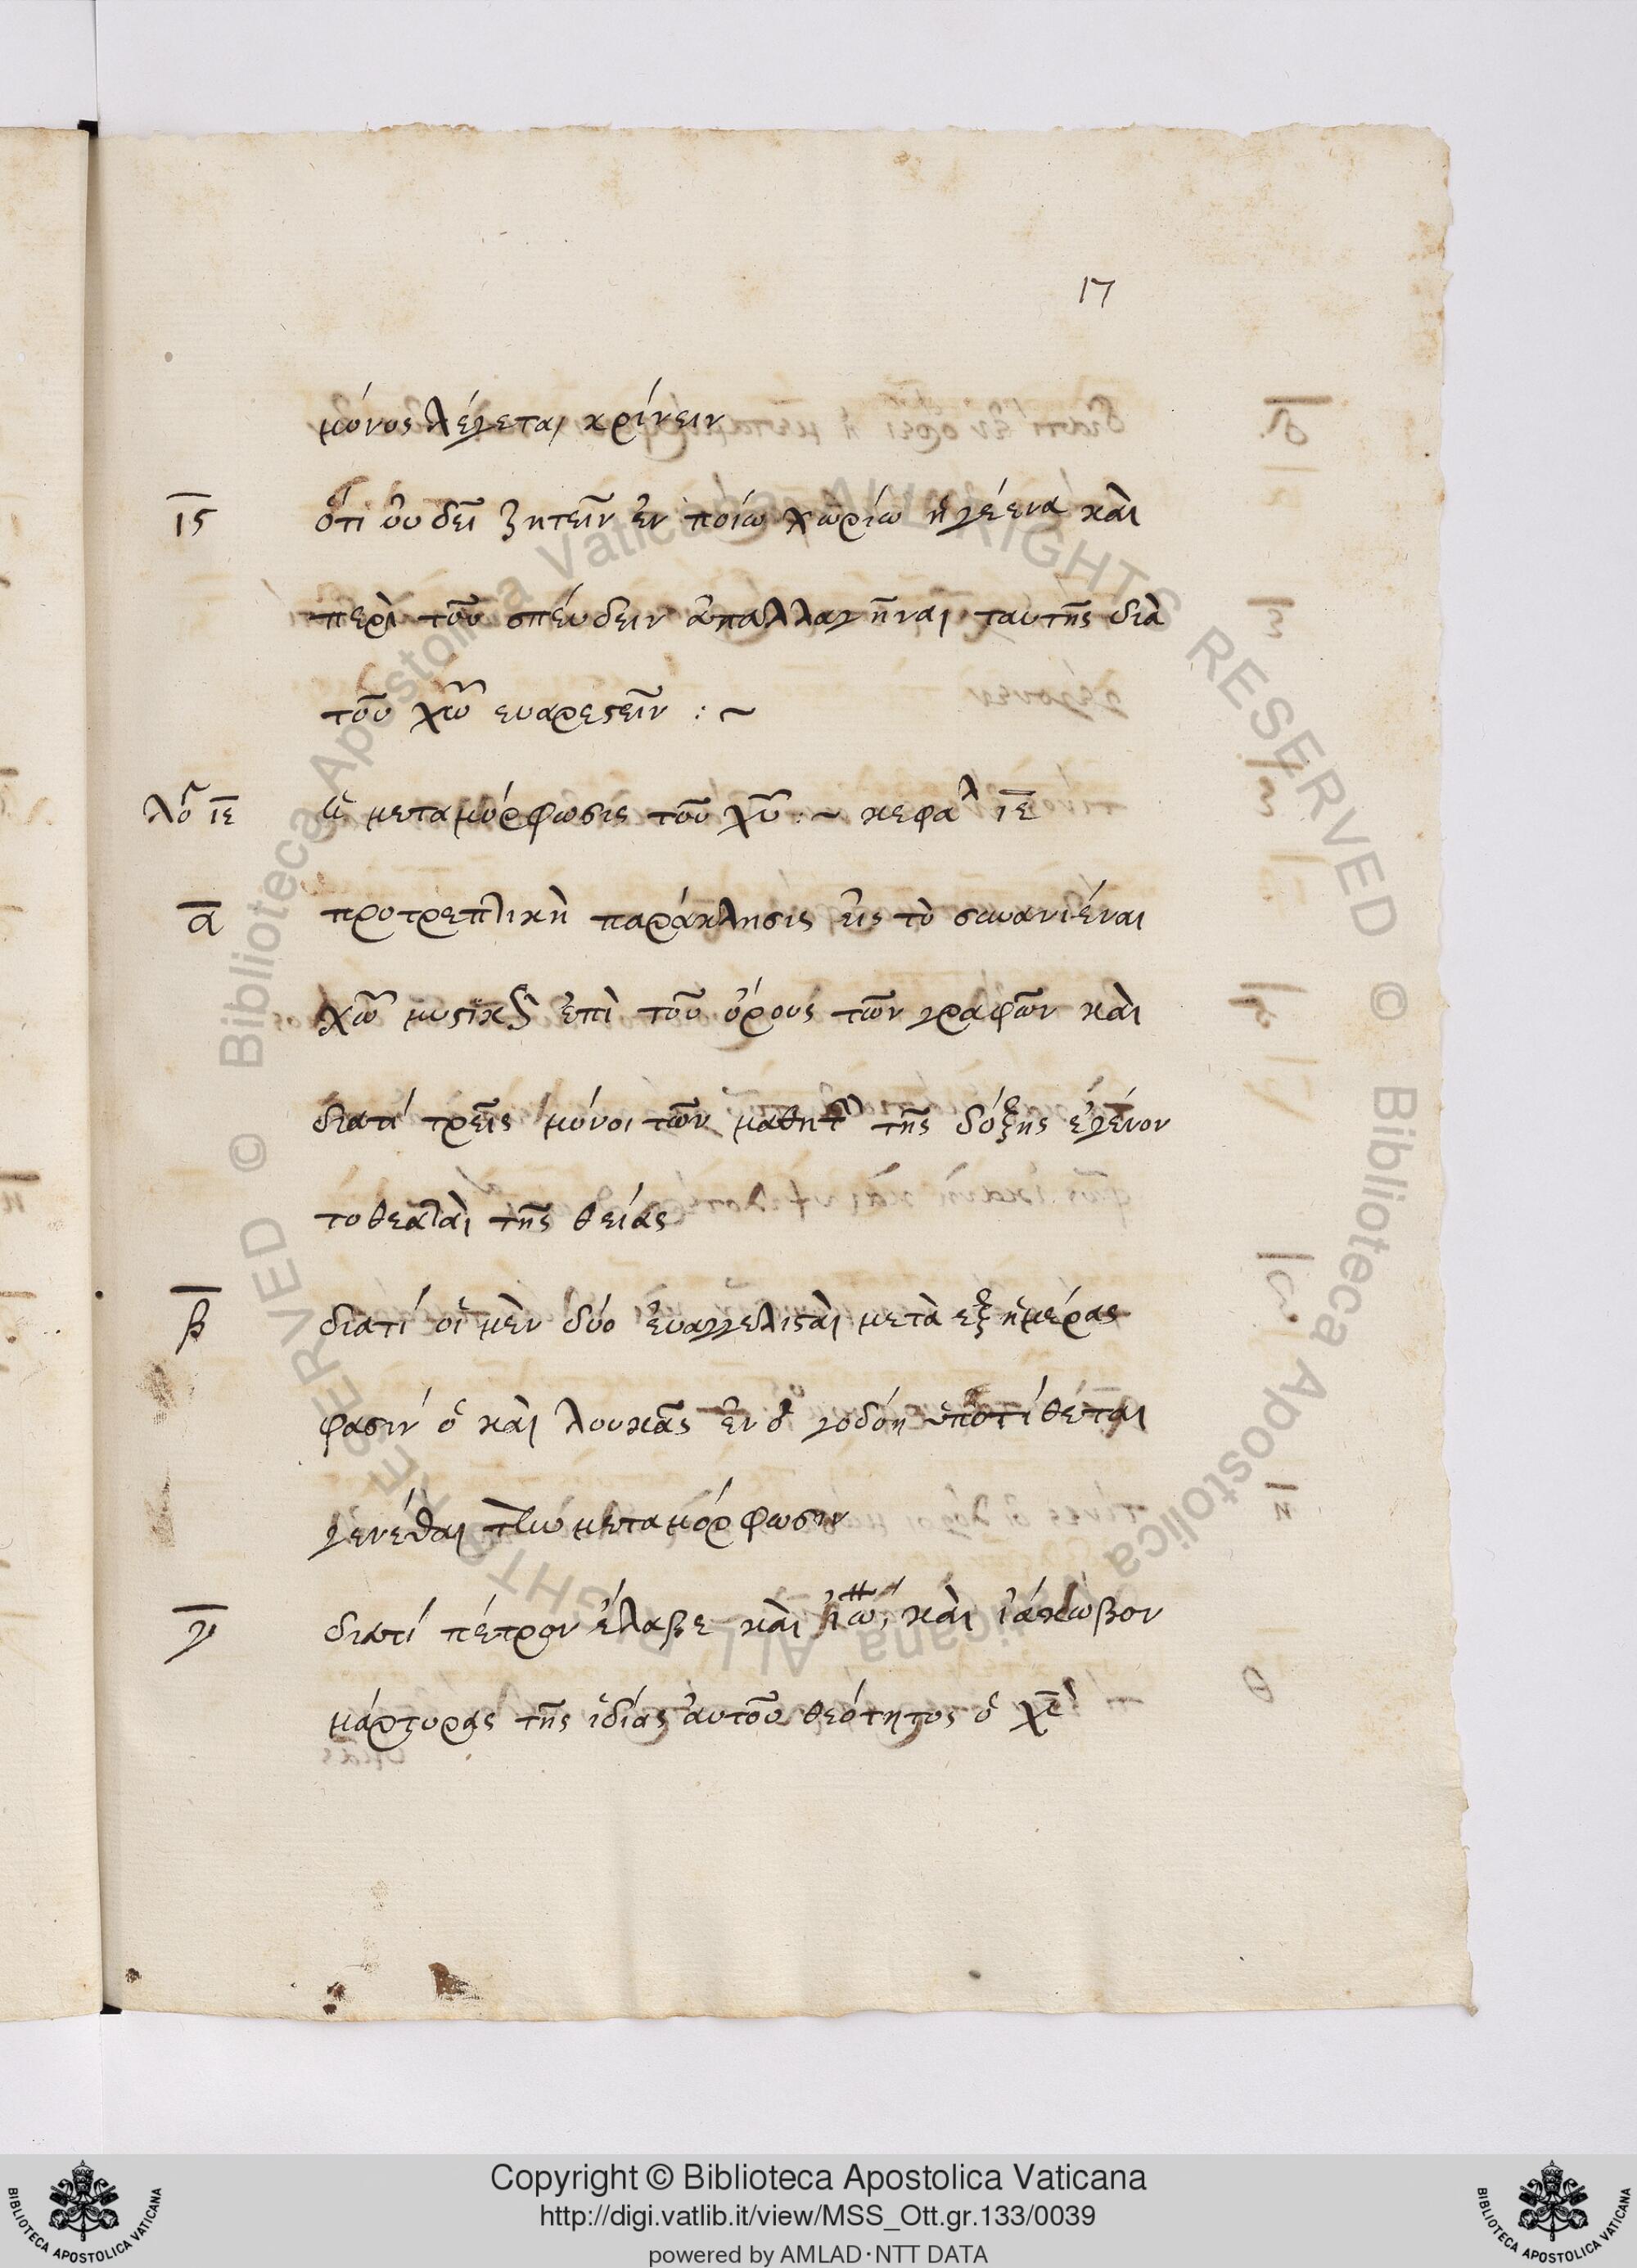 17
μόνος λέγεται κρίνειν
ιϛ ὅτι οὐ δεῖ ζητεῖν ἐν ποίω χωρίω ἡ γέενα καὶ
περὶ τοῦ σπεύδειν ἀπαλλαγῆναι ταυτῆς διὰ
τοῦ χω ευαρεςεῖν : ~
λο ιε μεταμόρφωσις τοῦ χυ : ~ κεφαλ ιε
α προτρεπτικὴ παράκλησις εἰς τὸ συνανιέναι
χω μυςικ ἐπὶ τοῦ ὄρους τῶν γραφῶν καὶ
διατί τρεῖς μόνοι τῶν μαθητ τῆς δόξης ἐγένον
το θεαταὶ τῆς θείας
β διατί οἱ μὲν δύο ἐυαγγελιςαὶ μετὰ εξ ἡμέρας
φασιν ὁ καὶ λουκᾶς ἐν ὀγοδόη ὑποτίθεται
γενέσθαι τὴν μεταμόρφωσιν
γ διατί πέτρον ἔλαβε καὶ ιω, καὶ ἰάκωβον
μάρτυρας τῆς ἰδίας ἀυτοῦ θεότητος ὁ χς
© Biblioteca Apostolica Vaticana ALL RIGHTS RESERVED © Biblioteca Apostolica Vaticana ALL RIGHTS RESERVED
Copyright © Biblioteca Apostolica Vaticana
http://digi.vatlib.it/view/MSS_Ott.gr.133/0039
powered by AMLAD·NTT DATA
BIBLIOTECA APOSTOLICA VATICANA
BIBLIOTECA APOSTOLICA VATICANA